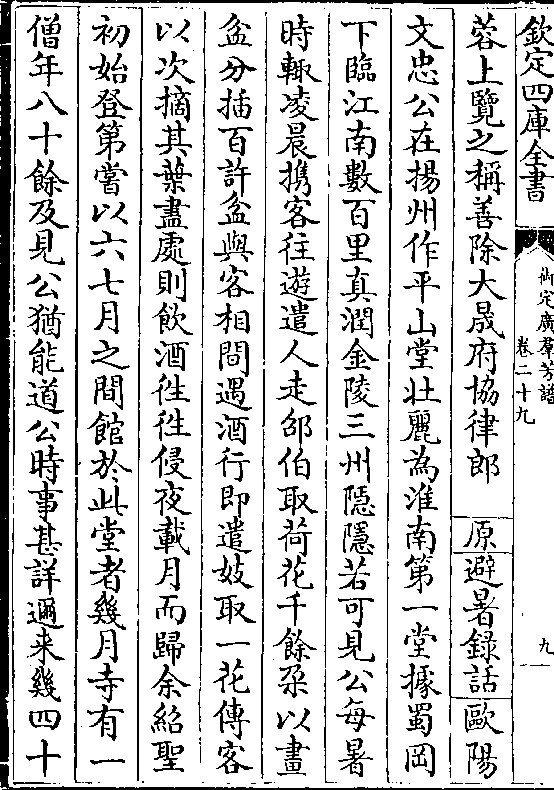 欽定四庫全書
御定廣羣芳譜
卷二十九
九
蓉上覽之稱善除大晟府協律郎 原避暑録話歐陽
文忠公在揚州作平山堂壯麗為淮南第一堂據蜀岡
下臨江南數百里真潤金陵三州隱隱若可見公每暑
時輙凌晨携客往遊遣人走邵伯取荷花千餘朶以畫
盆分插百許盆與客相間遇酒行即遣妓取一花傳客
以次摘其葉盡處則飲酒徃徃侵夜載月而歸余紹聖
初始登第嘗以六七月之間館於此堂者幾月寺有一
僧年八十餘及見公猶能道公時事甚詳邇来幾四十